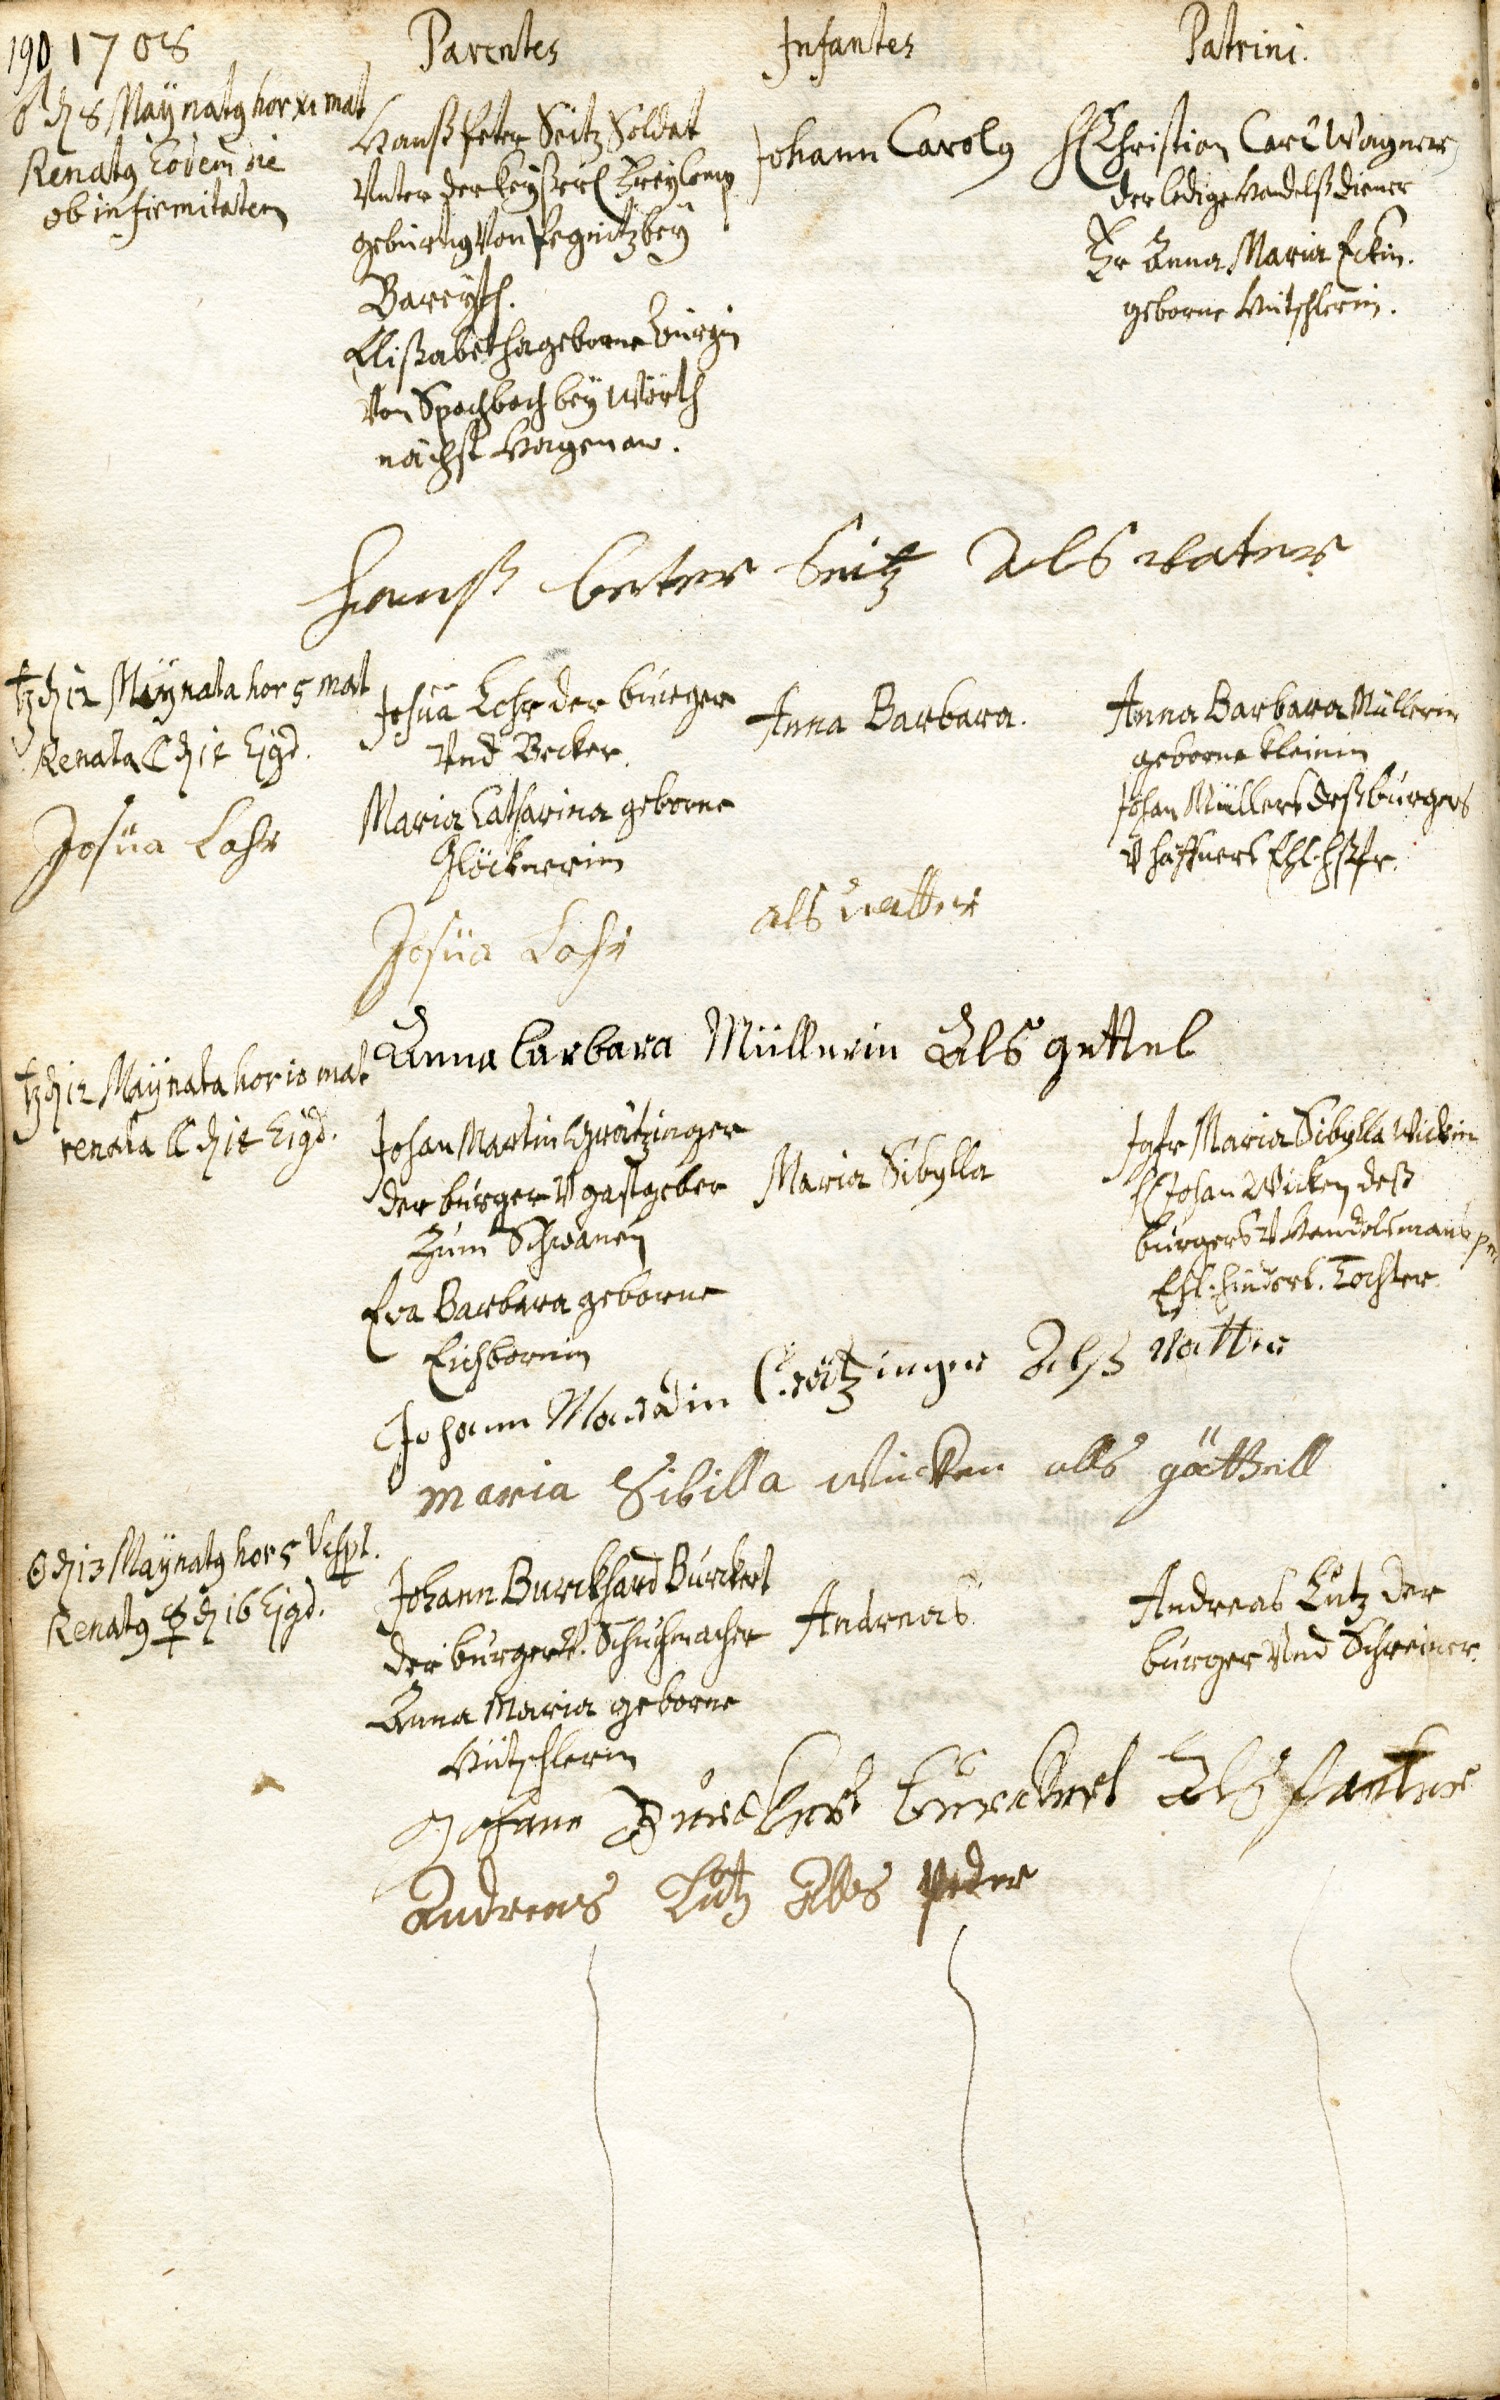 190 1708
Parentes
Infantes
Patrini.
♂ d 8 Maÿ natg hor xi mat
Renatg Eodem die
ob infirmitatem
Hanß Peter Seitz Soldat
Unter der Keÿßerl Freÿ Comp
gebürtig von Pegnitz beÿ
Bareÿth.
Elisabetha geborne Bürgin
Von Spachbach beÿ Wörth
nächst Hagenaw.
Johann Carolg
H Christian Carl Wagner
der ledige Handelß diener
Fr Anna Maria Eckin.
geborne Hütschlerin.
Hanß Peter Seitz Als vatter
♄ d 12 Maÿ nata hor 5 mat
Renata ☾ d 14 Ejgd.
Josua Lohr
Josua Lohr der burger
Und Becker.
Maria Catharina geborne
Glöcknerin
Anna Barbara.
Anna Barbara Müllerin
geborne Kleinin
Johan Müllers deß burgers
V haffners Ehl. haßfr.
Josua Lohr als vatter
Anna barbara Müllerin Als gettel
♄ d 12 Maÿ nata hor 10 mat
renata ☾ d 14 Eigd.
Johan Martin Grötzinger
der burger V gastgeber
Zum Schwanen
Eva Barbara geborne
Eichbornin
Maria Sibylla
Jgfr Maria Sibylla Wickin
H Johan Wicken deß
burgers V Handelsmans
Ehl. hinderl. Tochter
Johann Martin Crötzinger Alß vatter
maria Sibilla Wicken alls göttell
☉ d 13 Maÿ natg hor 5 Vespt.
Renatg ☿ d 16 Ejgd.
Johann Burckhard Burckert
der burger V. Schuhmacher
Anna Maria geborne
Hütschlerin
Andreas
Andreas Lutz der
burger Und Schreiner.
Johann Burckhert burckhert Als Vatter
Andreas Lutz Alls Peder